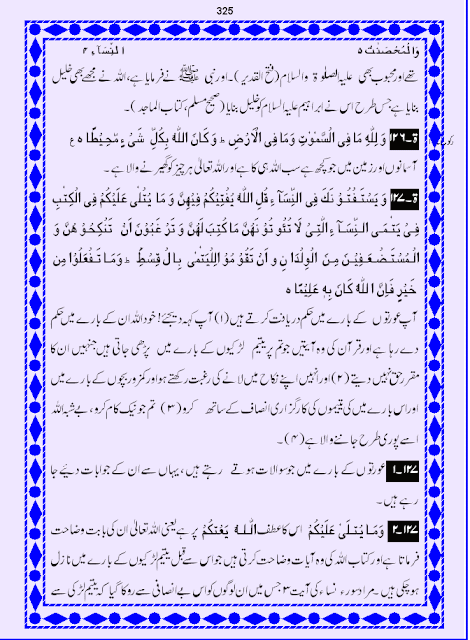 325
وَالْمُحْصَنٰتُ ٥ النِّسَآء ٤
تھے اور محبوب بھی علیہ الصلوٰۃ والسلام (فتح القدیر)۔ اور نبی ﷺ نے فرمایا ہے، اللہ نے مجھے بھی خلیل
بنایا ہے جس طرح اس نے ابراہیم علیہ السلام کو خلیل بنایا (صحیح مسلم، کتاب المساجد)۔
ۃ۔۱۲۶ وَ لِلّٰهِ مَا فِی السَّمٰوٰتِ وَمَا فِی الْاَرْضِ ط وَ کَانَ اللّٰهُ بِکُلِّ شَیْءٍ مُّحِیْطًا ہ ع
آسمانوں اور زمین میں جو کچھ ہے سب اللہ ہی کا ہے اور اللہ تعالیٰ ہر چیز کو گھیرنے والا ہے۔
ۃ۔۱۲۷ وَ یَسْتَفْتُوْ نَكَ فِی النِّسَآءِ قُلِ اللّٰهُ یُفْتِیْکُمْ فِیْهِنَّ وَ مَا یُتْلٰی عَلَیْکُمْ فِی الْکِتٰبِ
فِیْ یَتٰمَی النِّسَآءِ الّٰتِیْ لَا تُؤْ تُوْ نَهُنَّ مَا کُتِبَ لَهُنَّ وَ تَرْ غَبُوْنَ اَنْ تَنْکِحُوْ هُنَّ وَ
الْمُسْتَضْعَفِیْنَ مِنَ الْوِلْدَا نِ وَ اَنْ تَقُوْ مُوْ الِلْیَتٰمٰی بِا لْ قِسْطِ ط وَمَا تَفْعَلُوْا مِنْ
خَیْرٍ فَاِنَّ ا للّٰهَ کَانَ بِهٖ عَلِیْمًا ہ
آپ عورتوں کے بارے میں حکم دریافت کرتے ہیں (۱) آپ کہہ دیجئے! خود اللہ ان کے بارے میں حکم
دے رہا ہے اور قرآن کی وہ آیتیں جو تم پر یتیم لڑکیوں کے بارے میں پڑھی جاتی ہیں جنہیں ان کا
مقرر حق نہیں دیتے (۲) اور انہیں اپنے نکاح میں لانے کی رغبت رکھتے ہو اور کمزور بچوں کے بارے میں
اور اس بارے میں کی یتیموں کی کارگزاری انصاف کے ساتھ کرو (۳) تم جو نیک کام کرو، بے شبہ اللہ
اسے پوری طرح جاننے والا ہے (۴)۔
۱۲۷۔۱ عورتوں کے بارے میں جو سوالات ہوتے رہتے ہیں، یہاں سے ان کے جوابات دئیے جا
رہے ہیں۔
۱۲۷۔۲ وَ مَا یُتْلٰی عَلَیْکُمْ اس کا عطف اَللّٰهُ یُفْتِکُمْ پر ہے یعنی اللہ تعالیٰ ان کی بابت وضاحت
فرماتا ہے اور کتاب اللہ کی وہ آیات وضاحت کرتی ہیں جو اس سے قبل یتیم لڑکیوں کے بارے میں نازل
ہو چکی ہیں۔ مراد سورہء نساء کی آیت ۳ جس میں ان لوگوں کو اس بے انصافی سے روکا گیا کہ یتیم لڑکی سے